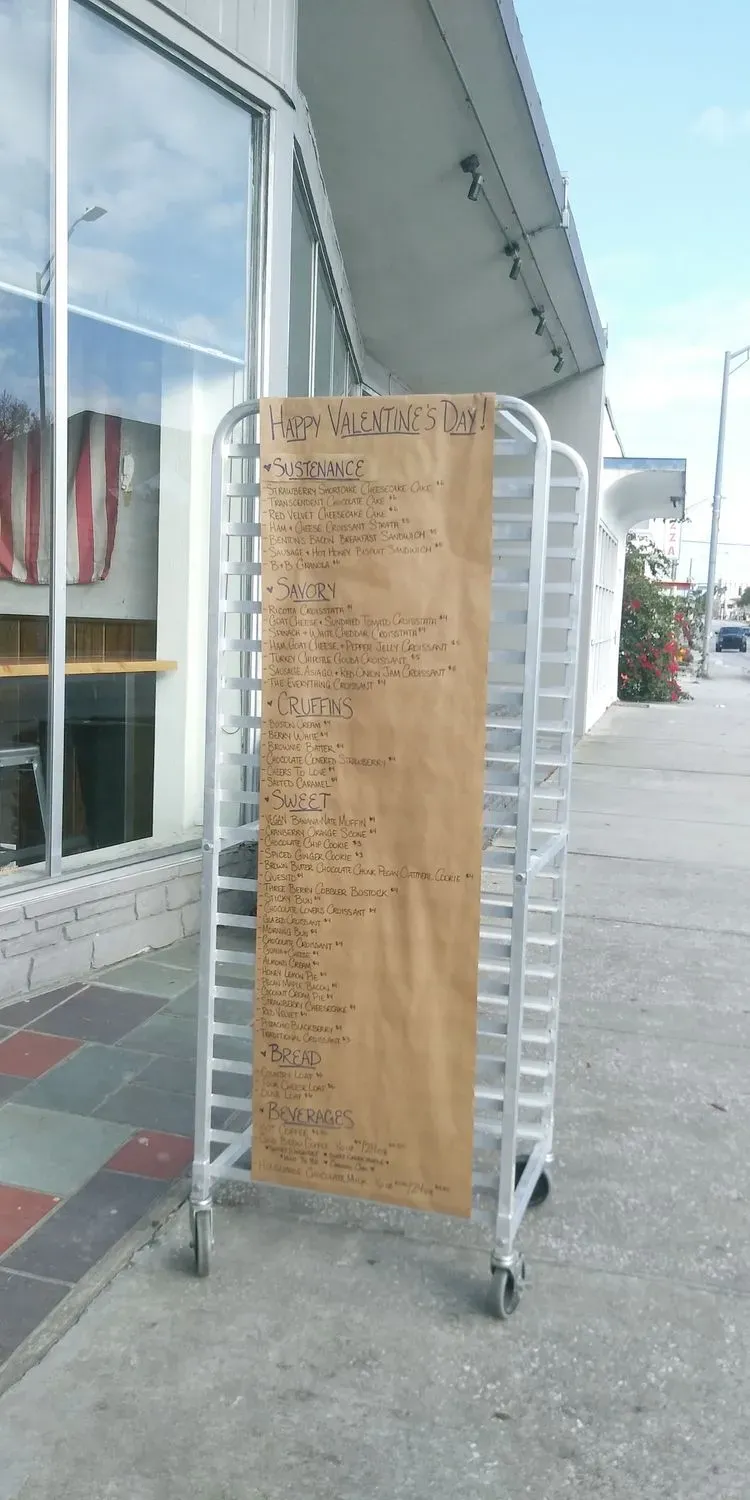 HAPPY VALENTINE'S DAY!
♥ SUSTENANCE
- STRAWBERRY SHORTCAKE CHEESECAKE CAKE $6
- TRANSCENDENT CHOCOLATE CAKE $6
- RED VELVET CHEESECAKE CAKE $6
- HAM + CHEESE CROISSANT STRATA $5
- BENTON'S BACON BREAKFAST SANDWICH
- SAUSAGE + HOT HONEY BISCUIT SANDWICH
- B+B GRANOLA
♥ SAVORY
- RICOTTA CROISSTATA $4
- GOAT CHEESE + SUNDRIED TOMATO CROISSTATA $4
- SPINACH + WHITE CHEDDAR CROISSTATA $4
- HAM, GOAT CHEESE + PEPPER JELLY CROISSANT
- TURKEY CHIPOTLE GOUDA CROISSANT
- SAUSAGE ASIAGO + RED ONION JAM CROISSANT
- THE EVERYTHING CROISSANT $4
♥ CRUFFINS
- BOSTON CREAM $4
- BERRY WHITE $4
- BROWNIE BATTER $4
- CHOCOLATE COVERED STRAWBERRY $4
- CHEERS TO LOVE $4
- SALTED CARAMEL $4
♥ SWEET
- VEGAN BANANA-NATE MUFFIN $4
- CRANBERRY ORANGE SCONE $4
- CHOCOLATE CHIP COOKIE $3
- SPICED GINGER COOKIE $3
- BROWN BUTTER CHOCOLATE CHUNK PECAN OATMEAL COOKIE $4
- QUESITO $4
- THREE BERRY COBBLER BOSTOCK $4
- STICKY BUN $4
- CHOCOLATE LOVERS CROISSANT $4
- GLAZED CROISSANT $4
- MORNING BUN $4
- CHOCOLATE CROISSANT $4
- GUAVA + CHEESE $4
- ALMOND CREAM $4
- HONEY LEMON PIE $4
- PECAN MAPLE BACON $4
- COCONUT CREAM PIE $4
- STRAWBERRY CHEESECAKE $4
- RED VELVET $4
- PISTACHIO BLACKBERRY $4
- TRADITIONAL CROISSANT $3
♥ BREAD
- COUNTRY LOAF $6
- FOUR CHEESE LOAF $6
- LOAF $6
♥ BEVERAGES
HOT COFFEE
COLD BREW COFFEE 16 OZ /24 OZ
HOUSEMADE CHOCOLATE MILK 16 OZ /24 OZ